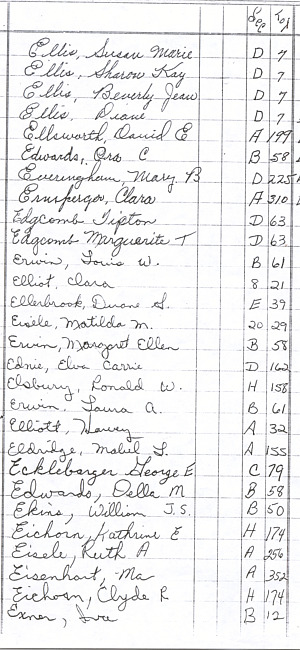 Sec Lot
Ellis, Susan Marie D 7
Ellis, Sharon Kay D 7
Ellis, Beverly Jean D 7
Ellis, Diane D 7
Ellsworth, David E A 199
Edwards, Ora C B 58
Everingham, Mary B D 225
Ernsperger, Clara A 310
Edgcomb Tipton D 63
Edgcomb Marguerite T D 63
Erwin, Louis W. B 61
Elliot, Clara 8 21
Ellerbrook, Duane S. E 39
Eisele, Matilda M. 20 29
Erwin, Margaret Ellen B 58
Edrie, Elva Carrie D 162
Elsbury, Ronald W. H 158
Erwin, Laura A. B 61
Elliott, Harvey A 32
Eldridge, Mabel L. A 155
Eckleberger George E C 79
Edwards, Della M B 58
Ekins, William J.S. B 50
Eichorn, Kathrine E H 174
Eisele, Ruth A A 256
Eisenhart, Ma A 352
Eichorn, Clyde R H 174
Exner, Ire B 12